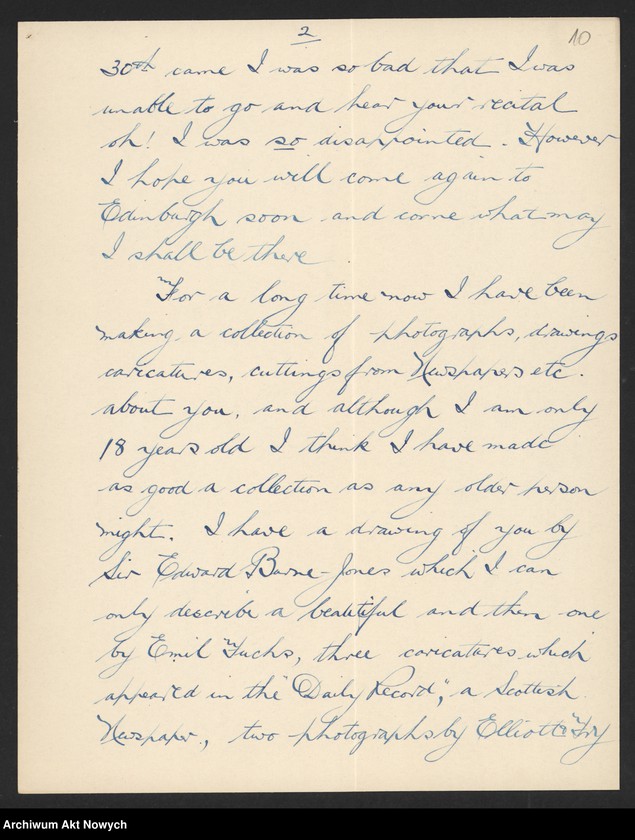 2
10
30th came I was so bad that I was
unable to go and hear your recital
oh! I was so disappointed. However
I hope you will come again to
Edinburgh soon and come what may
I shall be there
For a long time now I have been
making a collection of photographs, drawings
caricatures, cuttings from Newspapers etc.
about you, and although I am only
18 years old I think I have made
as good a collection as any older person
might. I have a drawing of you by
Sir Edward Burne-Jones which I can
only describe a beautiful and then one
by Emil Fuchs, three caricatures which
appeared in the "Daily Record", a Scottish
Newspaper, two photographs by Elliott & Fry
Archiwum Akt Nowych